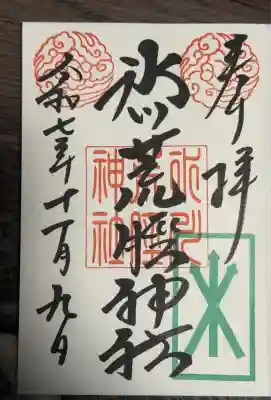 奉拝
氷川荒脛神社
氷川
荒脛
神社
令和七年十一月九日